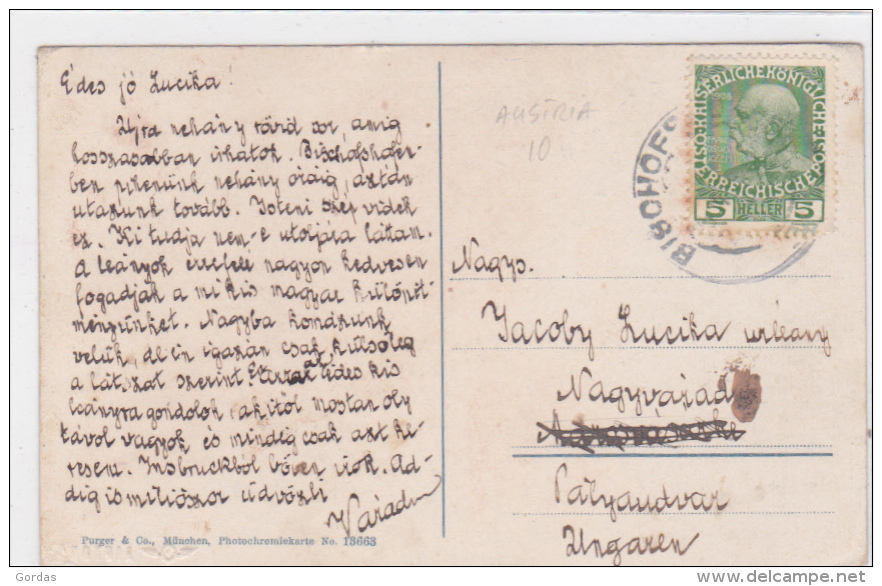 Édes jó Lucika!
Ujra nehány rövid sor, amig
hosszasabban irhatok. Bischofshofen-
ben pihenünk nehány óráig, aztán
utazunk tovább. Isteni szép vidék
ez. Ki tudja nem-e utoljára láttam.
A leányok errefelé nagyon kedvesen
fogadják a mi kis magyar különit-
ményünket. Nagyba komázunk
velük, de én igazán csak külsőleg
a látszat szerint. Én az édes kis
leányra gondolok akitől mostan oly
távol vagyok, és mindig csak azt ke-
resem. Insbruckból bőven irok. Ad-
dig is milliószor üdvözli
Váradi
Purger & Co., München, Photochromiekarte No. 13663
AUSTRIA
10
BISCHOFS
KAISERLICHE KÖNIGLICHE
ÖSTERREICHISCHE POST
5 HELLER 5
Nagys.
Jacoby Lucika urleány
Nagyvárad
Pályaudvar
Ungaren
© Gordas
delcampe.net